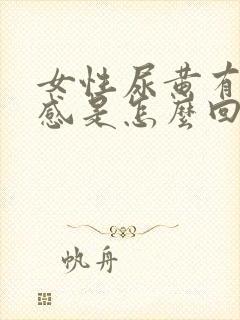 女性尿黄有
感是怎麼回
帆舟